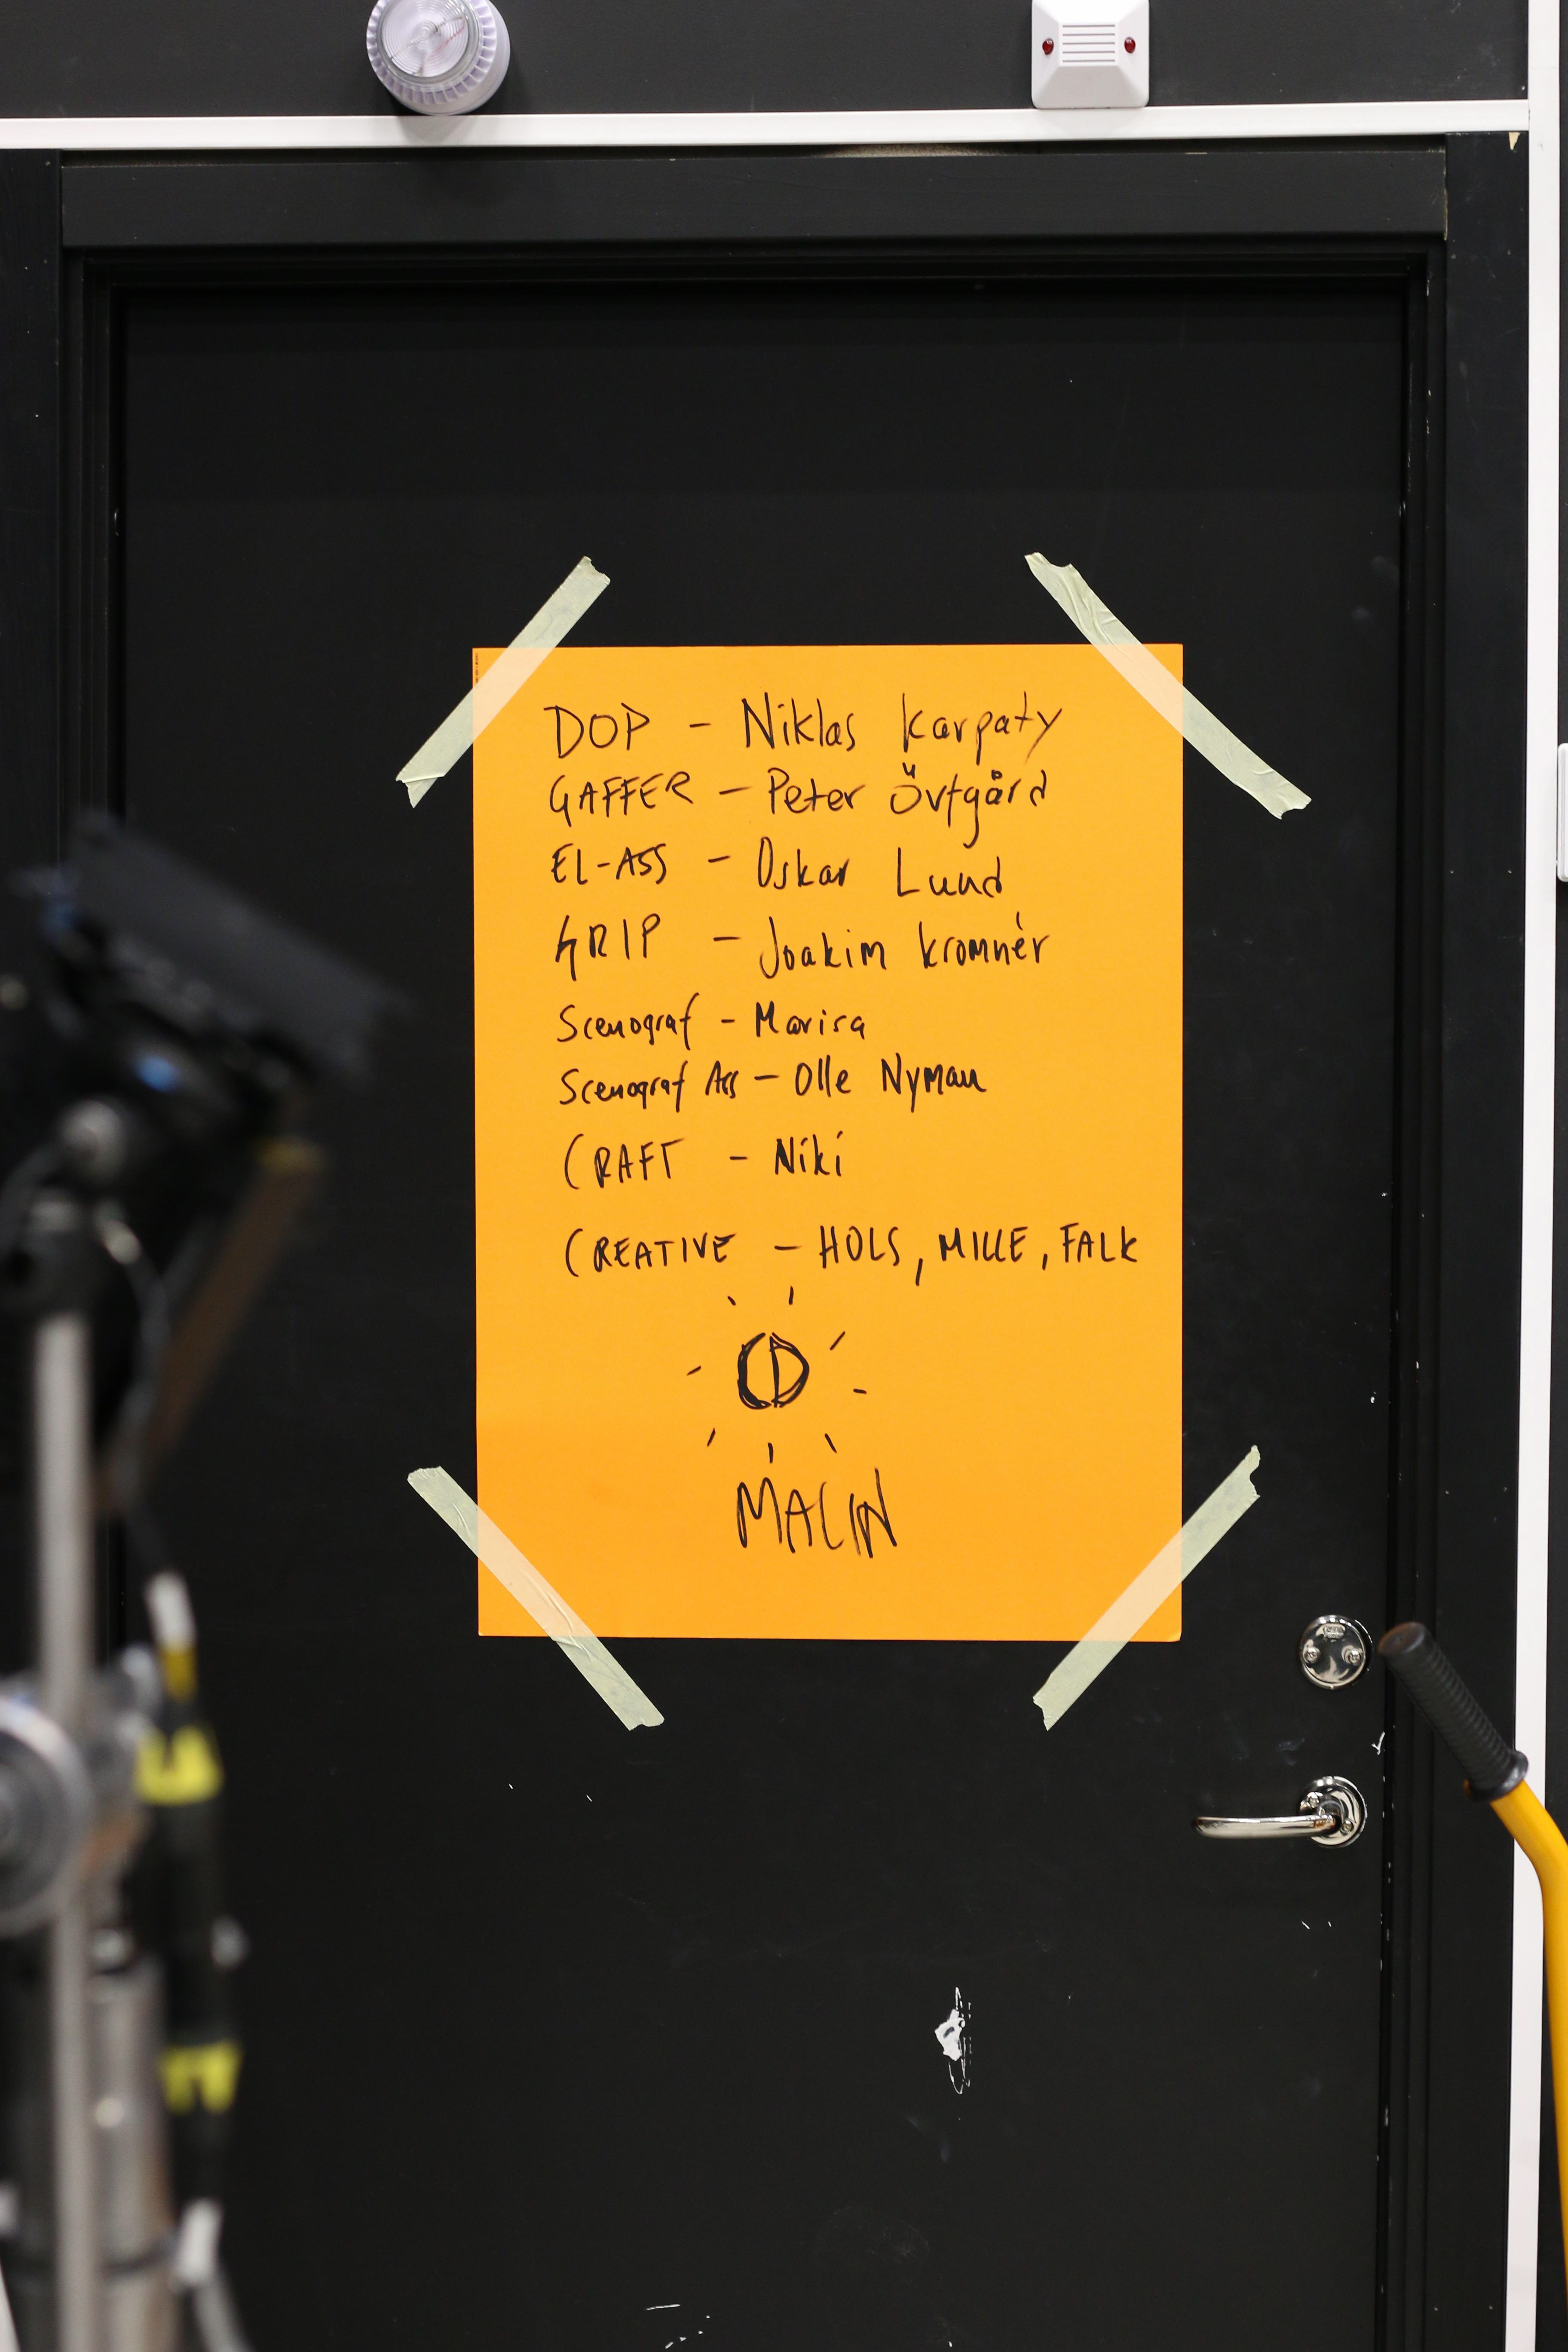 DOP - Niklas Karpaty
GAFFER - Peter Övtgård
EL-ASS - Oskar Lund
GRIP - Joakim Kromnér
Scenograf - Marisa
Scenograf Ass - Olle Nyman
CRAFT - Niki
CREATIVE - HOLS, MILLE, FALK
MALIN